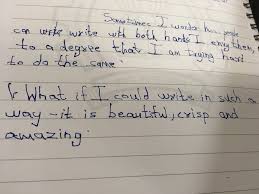 Sometimes I wonder how people
can write write with both hands I envy them,
to a degree that I am trying hard
to do the same.
What if I could write in such a
way - it is beautiful, crisp and
amazing.